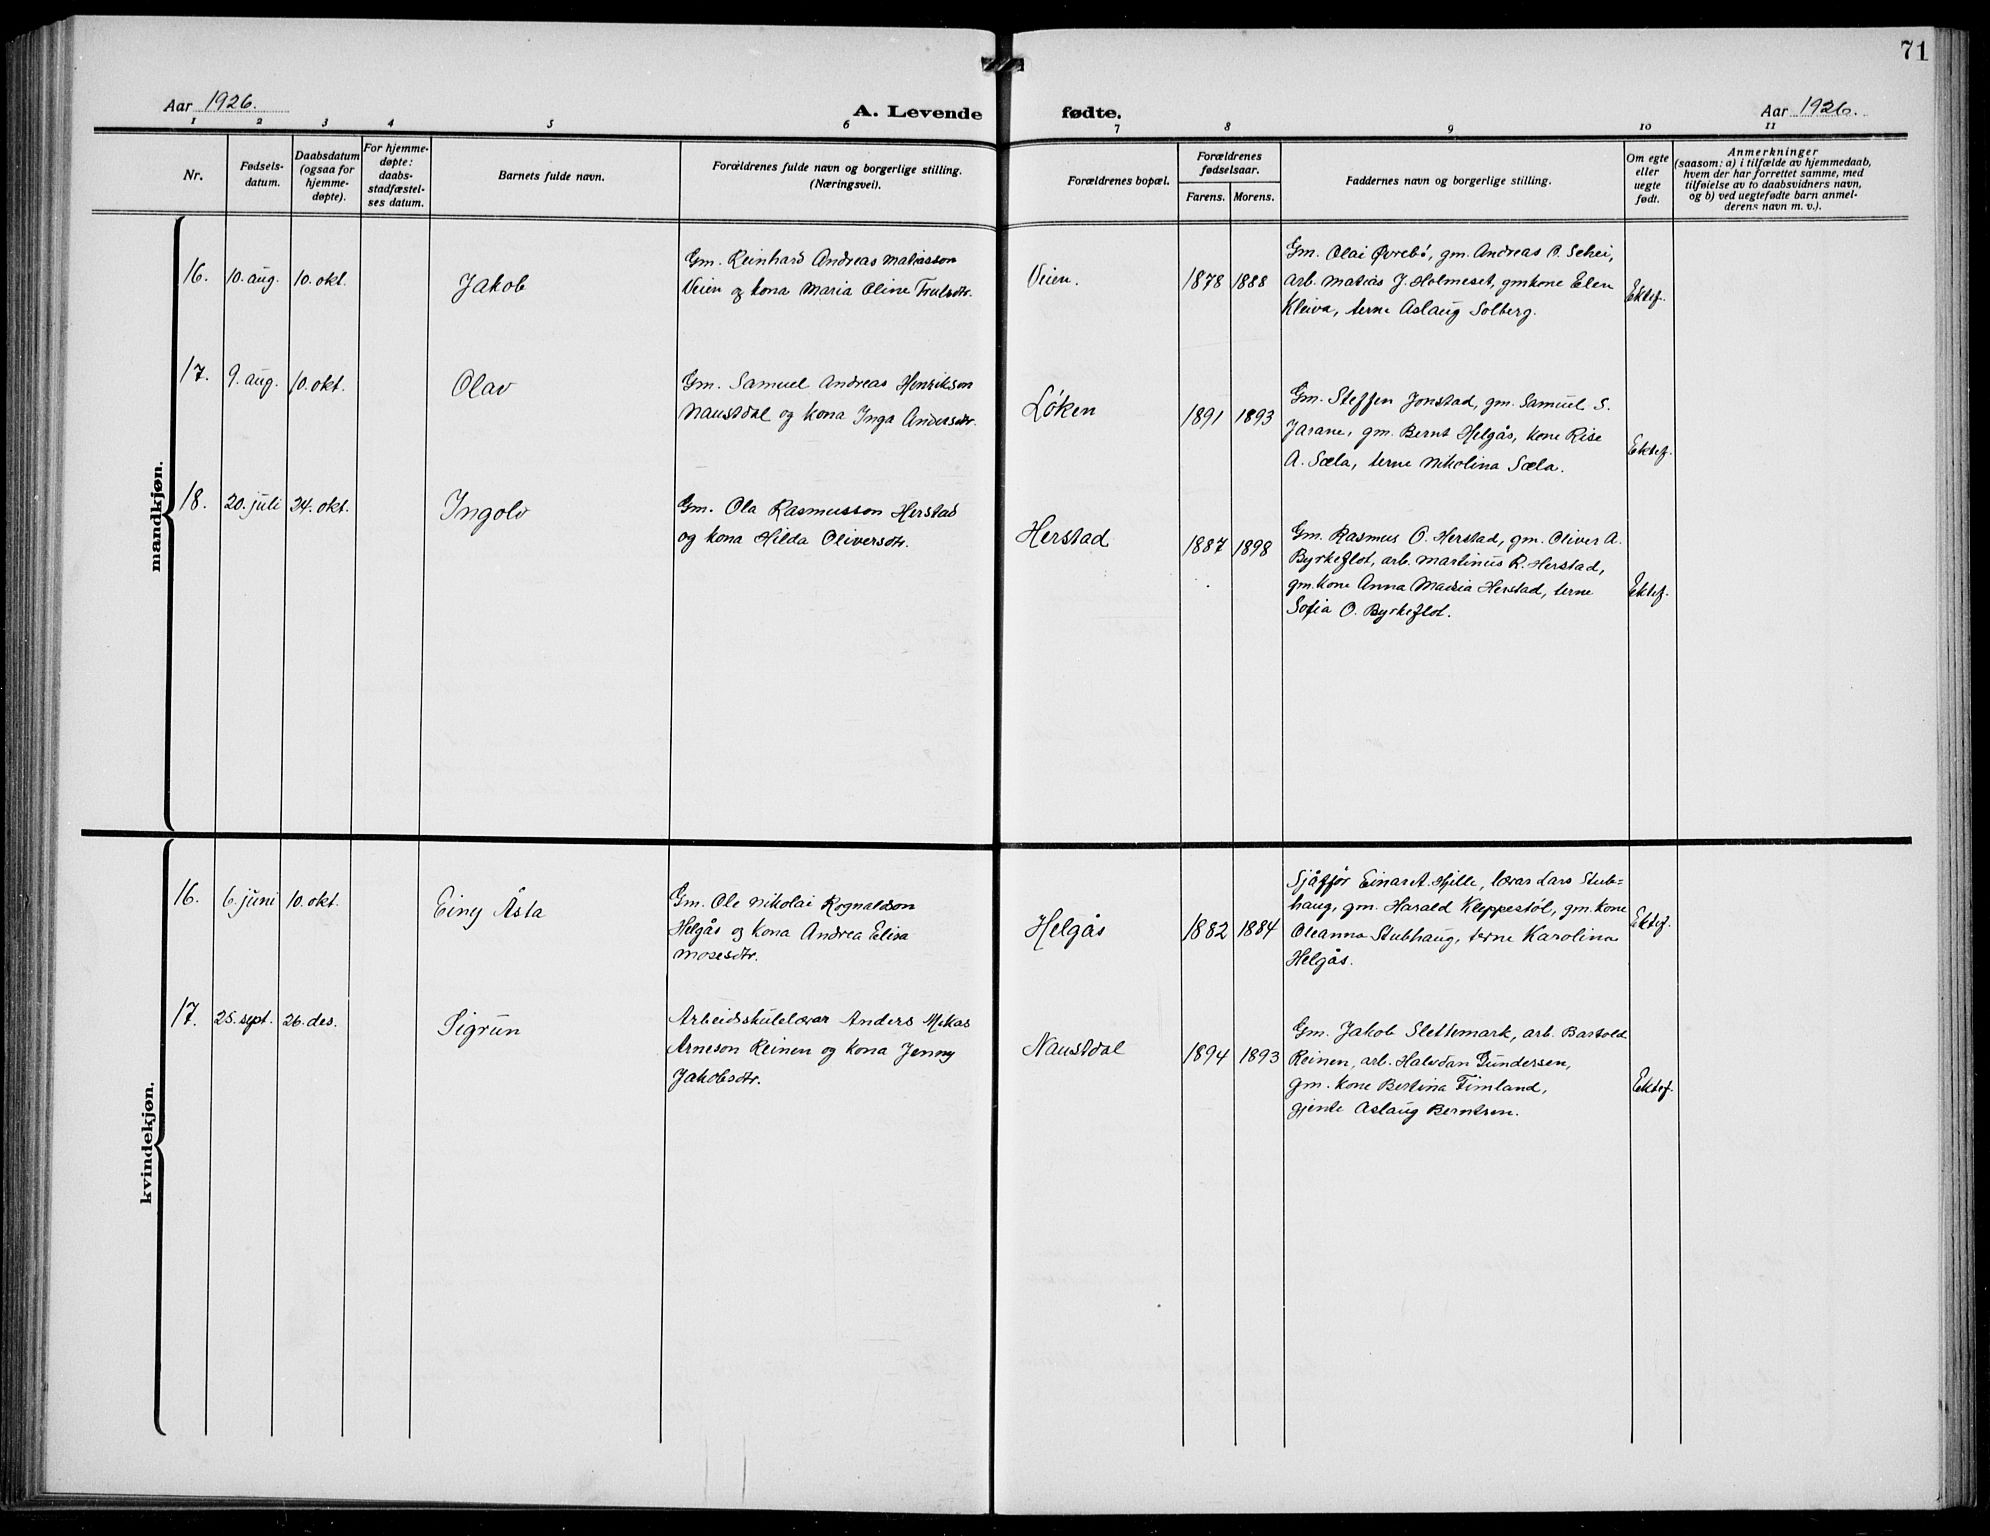 71
Aar 1926.
A. Levende fødte.
Aar 1926.
1 2 3 4 5 6 7 8 9 10 11
Nr.
Fødsels-
datum.
Daabsdatum
(ogsaa for
hjemme-
døpte).
For hjemme-
døpte:
daabs-
stadfæstel-
ses datum.
Barnets fulde navn.
Forældrenes fulde navn og borgerlige stilling.
(Næringsvei).
Forældrenes bopæl.
Forældrenes
fødselsaar.
Farens. Morens.
Faddernes navn og borgerlige stilling.
Om egte
eller
uegte
født.
Anmerkninger
(saasom: a) i tilfælde av hjemmedaab,
hvem der har forrettet samme, med
tilføielse av to daabsvidners navn,
og b) ved uegtefødte barn anmel-
derens navn m. v.).
mandkjøn.
16. 10. aug. 10. okt. Jakob
Gm. Reinhard Andreas Matiasson
Veien og kona Maria Oline Trulsdtr.
Veien. 1878 1888
Gm. Olai Øvrebö, gm. Andreas O. Schei,
arb. Matias J. Holmeset, gmkone Elen
Kleiva, terne Aslaug Solberg.
Ektef.
17. 9. aug. 10. okt. Olav
Gm. Samuel Andreas Henrikson
Naustdal og kona Inga Andersdtr.
Løken 1891 1893
Gm. Steffen Jonstad, gm. Samuel S.
Jarane, gm. Bernt Helgås, kone Rise
A. Sæla, terne Nikolina Sæla.
Ektef.
18. 20. juli 24. okt. Ingolv
Gm. Ola Rasmusson Herstad
og kona Hilda Oliversdtr.
Herstad 1887 1898
Gm. Rasmus O. Herstad, gm. Oliver A.
Byrkeflot, arb. Martinus R. Herstad,
gm. kone Anna Maria Herstad, terne
Sofia O. Byrkeflot.
Ektef.
kvindekjøn.
16. 6. juni 10. okt. Einy Åsta
Gm. Ole Nikolai Rognaldson
Helgås og kona Andrea Elisa
Mosesdtr.
Helgås 1882 1884
Sjåffør Einar A. Hjille, lærar Lars Stub-
haug, gm. Harald Kleppestöl, gm. kone
Oleanna Stubhaug, terne Karolina
Helgås.
Ektef.
17. 25. sept. 26. des. Sigrun
Arbeidskulelærar Anders Mikas
Arneson Reinen og kona Jenny
Jakobsdtr.
Naustdal 1894 1893
Gm. Jakob Slettemark, arb. Bartold
Reinen, arb. Halvdan Gundersen,
gm. kone Bertina Timland,
gjente Aslaug Berntsen.
Ektef.